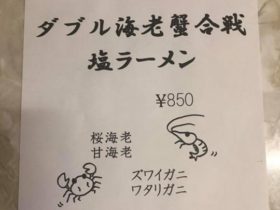 ダブル海老蟹合戦
塩ラーメン
¥850
桜海老
甘海老
ズワイガニ
ワタリガニ